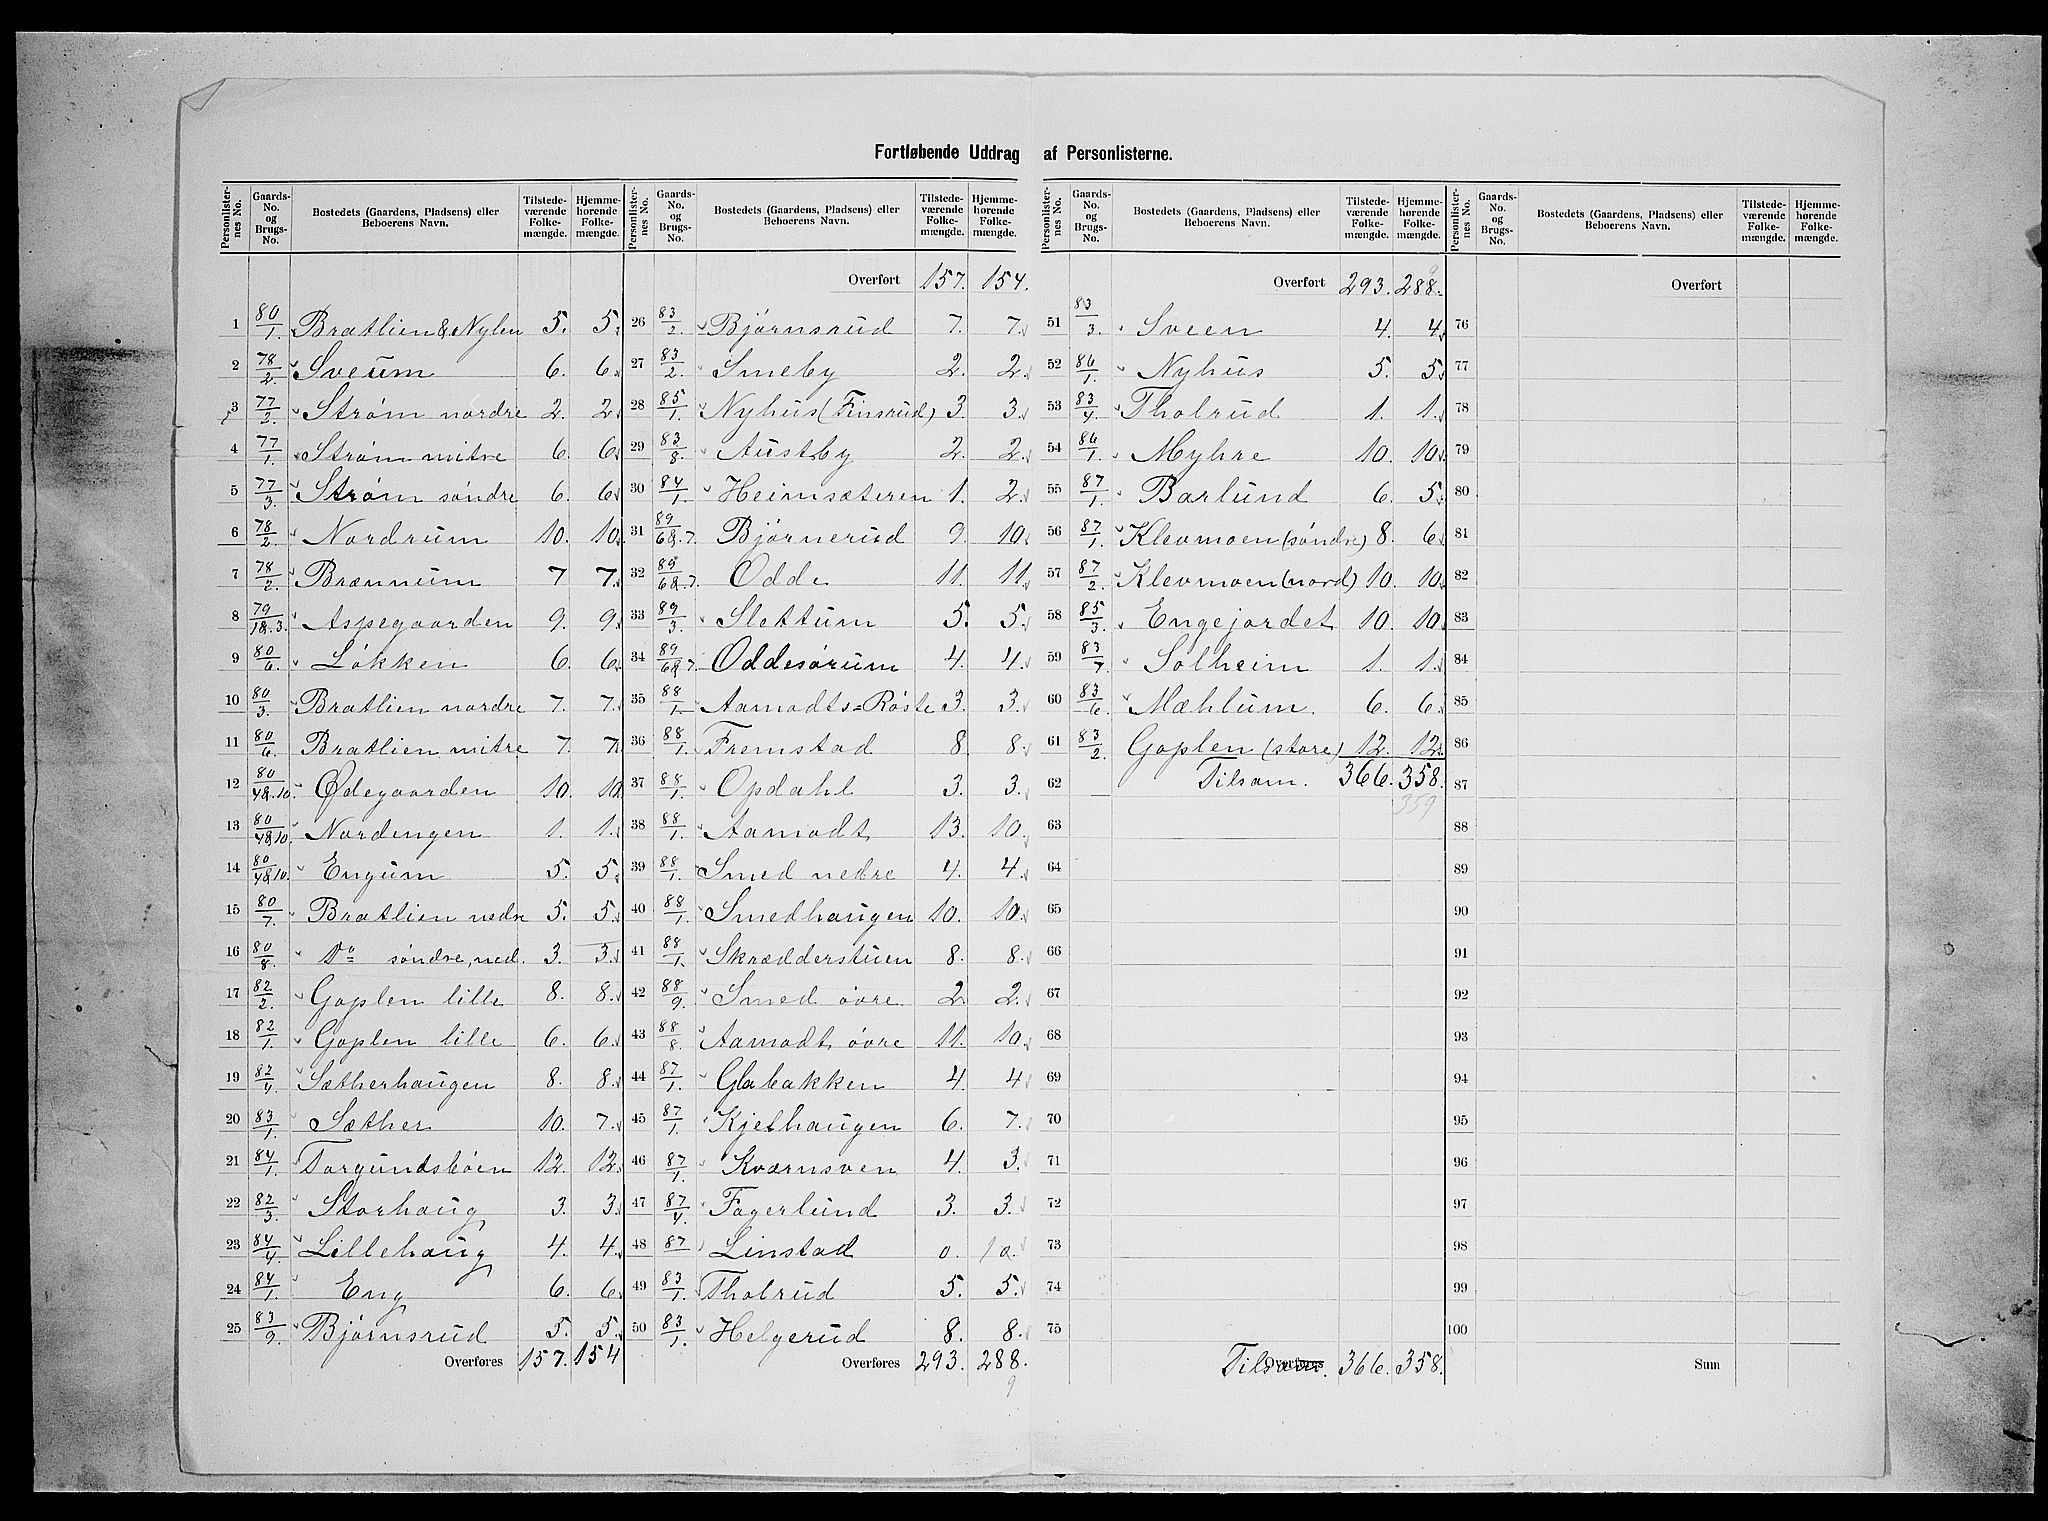 Fortløbende Uddrag af Personlisterne.
Personlister-nes No. | Gaards-No. og Brugs-No. | Bostedets (Gaardens, Pladsens) eller Beboerens Navn. | Tilstede-værende Folke-mængde. | Hjemme-hørende Folke-mængde.
1 80/1 Bratlien & Nylen 5. 5.
2 78/2 Sveum 6. 6.
3 77/2 Strøm nordre 2. 2.
4 77/1. Strøm mitre 6. 6.
5 77/3. Strøm søndre 6. 6.
6 78/2. Nordrum 10. 10.
7 78/2 Brænnum 7 7.
8 79/1&.3. Aspegaarden 9. 9.
9 80/6. Løkken 6. 6.
10 80/3. Bratlien nordre 7. 7.
11 80/6. Bratlien mitre 7. 7.
12 80/4&.10. Ødegaarden 10. 10.
13 80/4&10. Nordengen 1. 1.
14 80/4&10. Engum 5. 5.
15 80/7. Bratlien nedre 5. 5.
16 80/8. Do søndre, ned. 3. 3.
17 82/2. Goplen lille 8. 8.
18 82/1. Goplen lille 6. 6.
19 82/4. Sætherhaugen 8. 8.
20 83/1. Sæther 10. 7.
21 84/1. Torgundsbøen 12. 12.
22 82/3. Storhaug 3. 3.
23 84/4. Lillehaug 4. 4.
24 84/1. Eng 6. 6.
25 83/9. Bjørnsrud 5. 5.
Overføres 157. 154
Personlister-nes No. | Gaards-No. og Brugs-No. | Bostedets (Gaardens, Pladsens) eller Beboerens Navn. | Tilstede-værende Folke-mængde. | Hjemme-hørende Folke-mængde.
Overført 157. 154.
26 83/2. Bjørnsrud 7. 7.
27 83/2. Smeby 2. 2.
28 85/1. Nyhus (Finsrud) 3 3.
29 83/8. Austby 2. 2.
30 84/1. Heimsæteren 1. 2.
31 89/6&.7. Bjørnerud 9. 10.
32 89/6&.7. Odde 11. 11.
33 89/3. Slettum 5. 5.
34 89/6&7. Oddesørum 4. 4.
35 88/1. Aamodts=Røste 3. 3.
36 88/1. Fremstad 8. 8.
37 88/1. Opdahl 3. 3.
38 88/1. Aamodt 13. 10.
39 88/1. Smed nedre 4. 4.
40 88/1. Smedhaugen 10. 10.
41 88/1. Skrædderstuen 8. 8.
42 88/9. Smed øvre. 2. 2.
43 88/8. Aamodt øvre 11. 10.
44 87/1. Glabakken 4. 4
45 87/1. Kjelhaugen 6. 7.
46 87/1. Kværnsven 4. 3.
47 87/4. Fagerlund 3. 3.
48 87 Linstad 0. 10.
49 83/1. Tholrud 5. 5.
50 83/1. Helgerud 8. 8.
Overføres 293. 288.
9
Personlister-nes No. | Gaards-No. og Brugs-No. | Bostedets (Gaardens, Pladsens) eller Beboerens Navn. | Tilstede-værende Folke-mængde. | Hjemme-hørende Folke-mængde.
9
Overført 293. 288.
51 83/3. Sveen 4. 4.
52 86/1. Nyhus 5. 5
53 83/4. Tholrud 1. 1.
54 86/1. Myhre 10. 10.
55 87/1. Barlund 6. 5.
56 87/1. Klevmoen (søndre) 8. 6.
57 87/2. Klevmoen (nord) 10. 10.
58 85/3. Engejordet 10. 10.
59 83/7. Solheim 1. 1.
60 83/6. Mæhlum. 6. 6.
61 83/2. Goplen (store) 12. 12.
62 Tilsam. 366. 358.
359
63
64
65
66
67
68
69
70
71
72
73
74
75
Overføres Tilsam. 366. 358.
Personlister-nes No. | Gaards-No. og Brugs-No. | Bostedets (Gaardens, Pladsens) eller Beboerens Navn. | Tilstede-værende Folke-mængde. | Hjemme-hørende Folke-mængde.
Overført
76
77
78
79
80
81
82
83
84
85
86
87
88
89
90
91
92
93
94
95
96
97
98
99
100
Sum